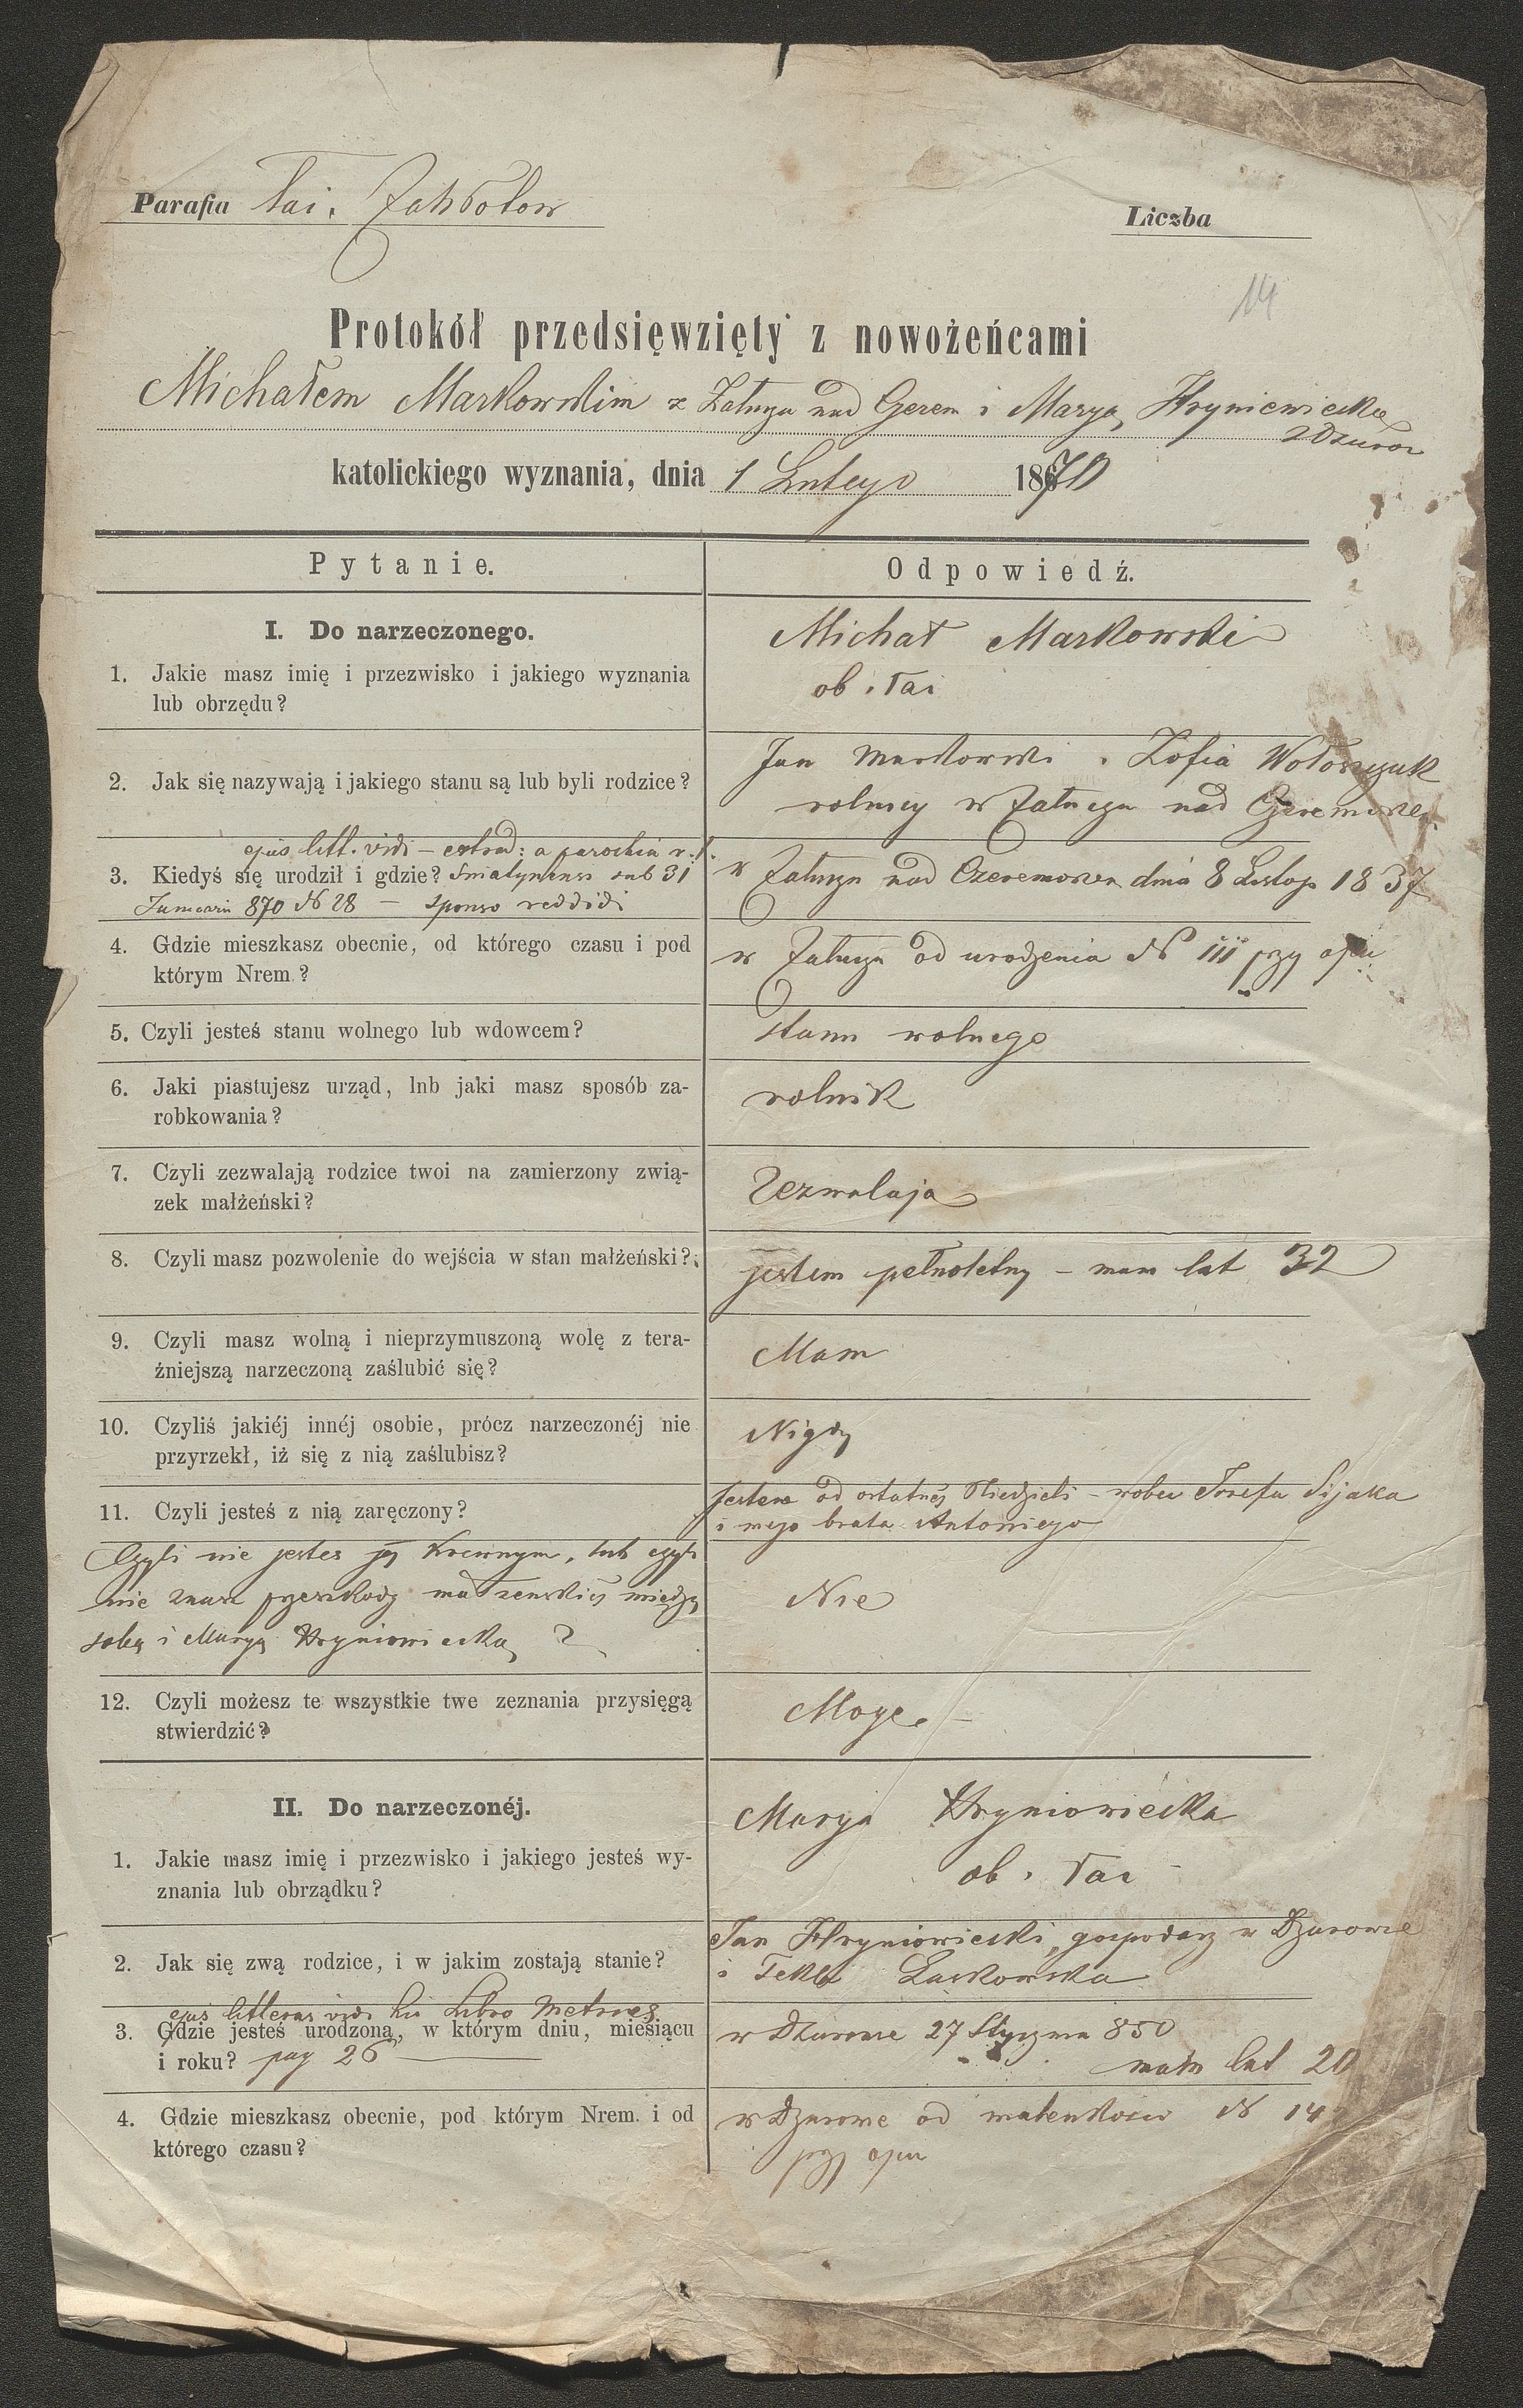 Parafia łać. Zabłotow
Liczba
14
Protokół przedsięwzięty z nowożeńcami
Michałem Markowskim z Załucza nad Czerem i Maryą Hryniewiecką
z Dżurow
katolickiego wyznania, dnia 1 Lutego 1870
Pytanie.
Odpowiedź.
I. Do narzeczonego.
1. Jakie masz imię i przezwisko i jakiego wyznania
lub obrzędu?
Michał Markowski
ob. łać
2. Jak się nazywają i jakiego stanu są lub byli rodzice?
Jan Markowski i Zofia Wołoszczuk
rolnicy w Załuczu nad Czeremosze
ejus litt. vidi – extrad: a parochia r. l.
3. Kiedyś się urodził i gdzie? Sniatynensi sub 31
Januarii 870 N 28 – sponso reddidi
w Załuczu nad Czeremoszem dnia 8 Listop 1837
4. Gdzie mieszkasz obecnie, od którego czasu i pod
którym Nrem?
w Załuczu od urodzenia N 111 przy ojcu
5. Czyli jesteś stanu wolnego lub wdowcem?
stanu wolnego
6. Jaki piastujesz urząd, lnb jaki masz sposób za-
robkowania?
rolnik
7. Czyli zezwalają rodzice twoi na zamierzony zwią-
zek małżeński?
Zezwalają
8. Czyli masz pozwolenie do wejścia w stan małżeński?
jestem pełnoletny – mam lat 32
9. Czyli masz wolną i nieprzymuszoną wolę z tera-
źniejszą narzeczoną zaślubić się?
Mam
10. Czyliś jakiéj innéj osobie, prócz narzeczonéj nie
przyrzekł, iż się z nią zaślubisz?
Nigdy
11. Czyli jesteś z nią zaręczony?
Jestem od ostatniej Niedzieli – wobec Josefa Sijaka
i mego brata Antoniego
Czyli nie jestes jej krewnym, lub czyli
nie znasz przeszkody małzenskiej między
sobą i Maryą Hryniowiecką?
Nie
12. Czyli możesz te wszystkie twe zeznania przysięgą
stwierdzić?
Mogę. –
II. Do narzeczonéj.
1. Jakie masz imię i przezwisko i jakiego jesteś wy-
znania lub obrządku?
Marya Hryniowiecka
ob. łać –
2. Jak się zwą rodzice, i w jakim zostają stanie?
Jan Hryniowiecki, gospodarz w Dżurowie
i Tekla Laskowska
ejus litteras vidi hic Libro Metrices
3. Gdzie jesteś urodzoną, w którym dniu, miesiącu
i roku? pag 26
w Dżurowie 27 Stycznia 850
mam lat 20
4. Gdzie mieszkasz obecnie, pod którym Nrem. i od
którego czasu?
w Dżurowie od maleńkości N 14
przy ojcu